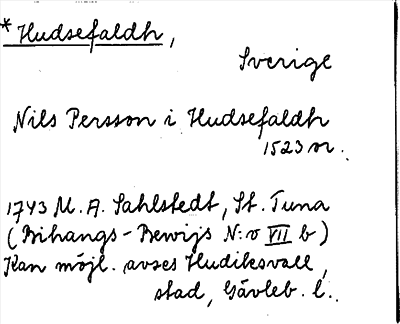 * Hudsefaldh,
Sverige
Nils Persson i Hudsefaldh
1523 n.
1743 M. A. Sahlstedt, St. Tuna
(Bihangs-Bewijs N:o VII b)
Kan möjl. avses Hudiksvall,
stad, Gävleb. l.